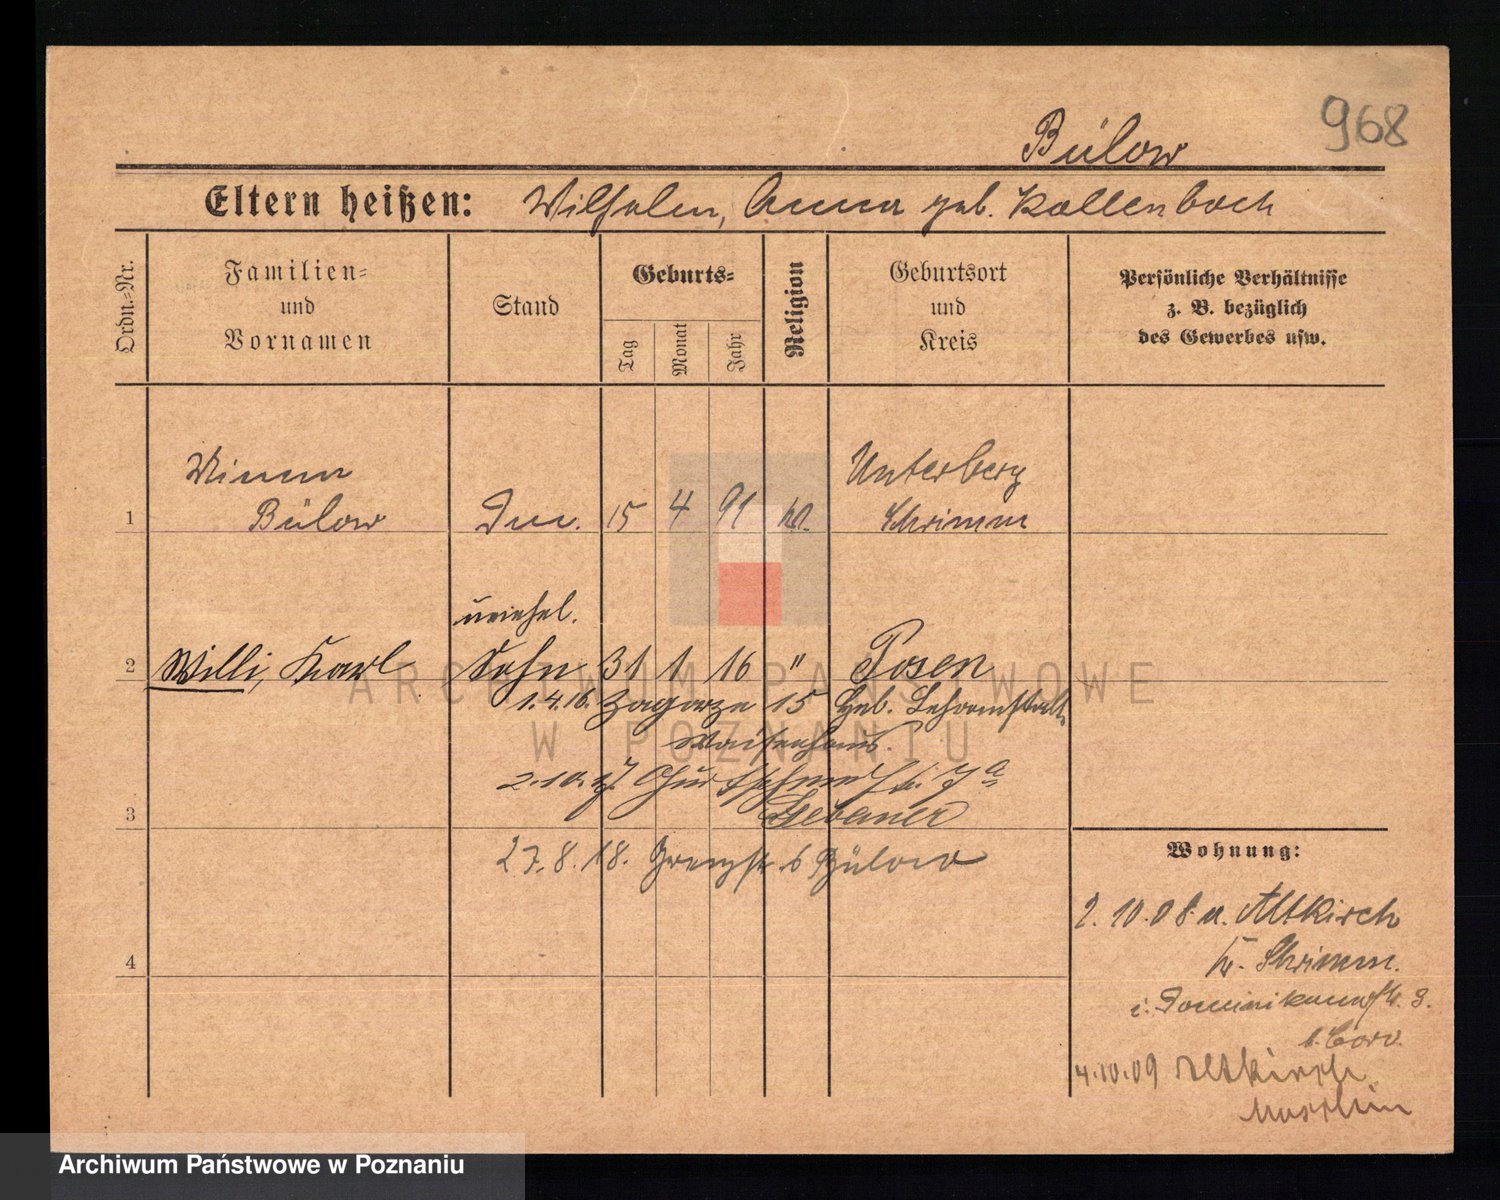 968
Bülow
Eltern heißen: Wilhelm, Anna geb. Kallenbach
Ordn.=Nr.
Familien=
und
Vornamen
Stand
Geburts=
Tag
Monat
Jahr
Religion
Geburtsort
und
Kreis
Persönliche Verhältnisse
z. B. bezüglich
des Gewerbes usw.
Minna Unterberg
1 Bülow 15 4 91 Schrimm
unehel.
2 Willi, Karl Sohn 31 1 16 " Posen
1.4.16. Zagorze 15 Geb.
Waisenhaus.
2.10.17
3 Gebauer
27.8.18. Grenzstr. b Bülow
Wohnung:
2.10.08 n. Altkirch
4 Kr. Schrimm.
i. Dominikanerstr. 3.
4.10.09 Altkirch
ARCHIWUM PAŃSTWOWE
W POZNANIU
Archiwum Państwowe w Poznaniu